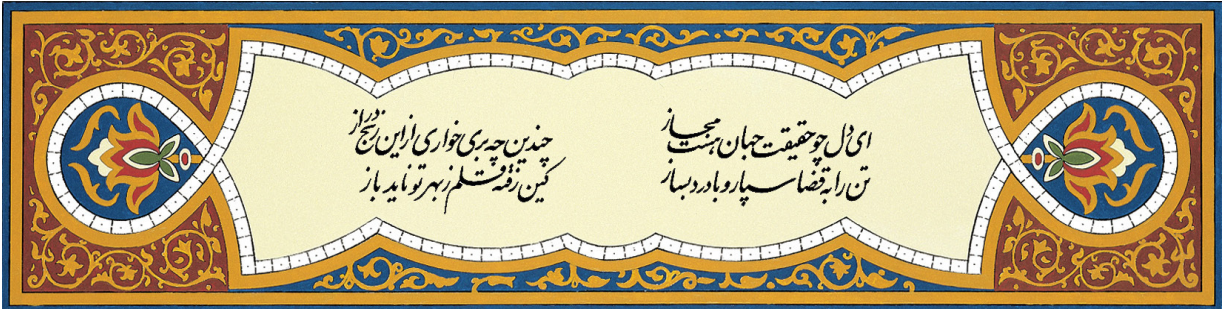 ای دل چو حقیقت جهان هست مجاز
چندین چه بری خواری ازین رنج دراز
تن را به قضا سپار و با درد بساز
کین رفته قلم ز بهر تو ناید باز